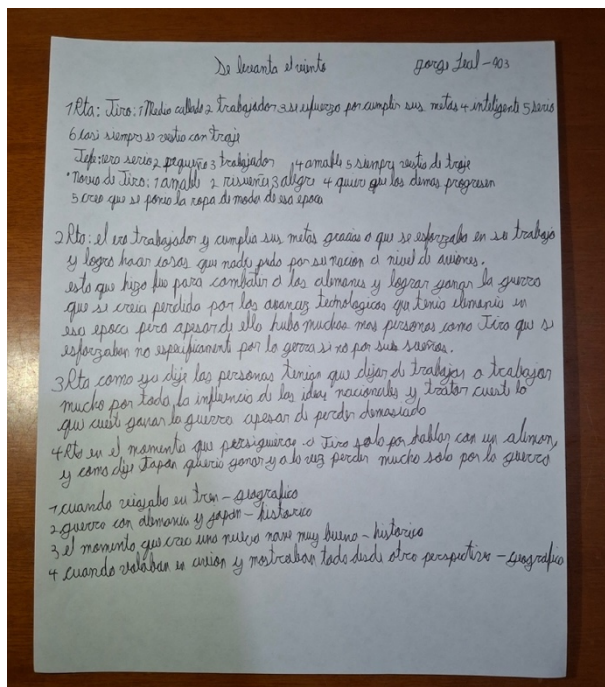 Se levanta el viento gorge Leal - 903
1 Rta: Jiro: 1 Medio callado 2 trabajador 3 se esfuerzo por cumplir sus metas 4 inteligente 5 serio
6 casi siempre se vestia con traje
Jefe: 1 era serio 2 pequeño 3 trabajador 4 amable 5 siempre vestia de traje
• Novia de Jiro: 1 amable 2 risueña 3 alegre 4 quier que los demas progresen
5 creo que se ponia la ropa de moda de esa epoca
2 Rta: el era trabajador y cumplia sus metas gracias a que se esforzaba en su trabajo
y logro hacer cosas que nadie pudo por su nacion a nivel de aviones.
esto que hizo fue para combatir a los alemanes y lograr ganar la guerra
que se creia perdida por los avances tecnologicos que tenia alemania en
esa epoca pero apesar de ello hubo muchas mas personas como Jiro que se
esforzaban no especificamente por la gerra si no por sus sueños.
3 Rta como ya dije las personas tenian que dejar de trabajar o trabajar
mucho por toda la influencia de las ideas nacionales y tratar cueste lo
que cueste ganar la guerra apesar de perder demasiado
4 Rta en el momento que persiguieron a Jiro solo por hablar con un aleman,
y como dije Japon queria ganar y a la vez perder mucho solo por la guerra
1 cuando viajaba en tren - geografico
2 guerra con alemania y japon - historico
3 el momento que creo una nueva nave muy bueno - historico
4 cuando volaban en avion y mostraban todo desde otra perspectiva - geografico